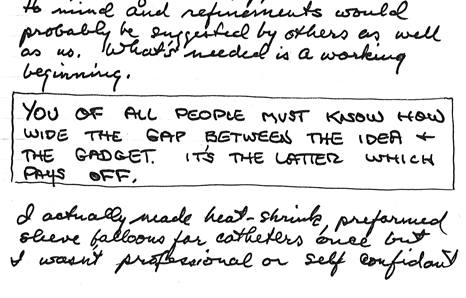 to mind and refinements would
probably be suggested by others as well
as us. What's needed is a working
beginning.
YOU OF ALL PEOPLE MUST KNOW HOW
WIDE THE GAP BETWEEN THE IDEA +
THE GADGET. IT'S THE LATTER WHICH
PAYS OFF.
I actually made heat-shrink, preformed
sleeve balloons for catheters once but
I wasn't professional or self confidant